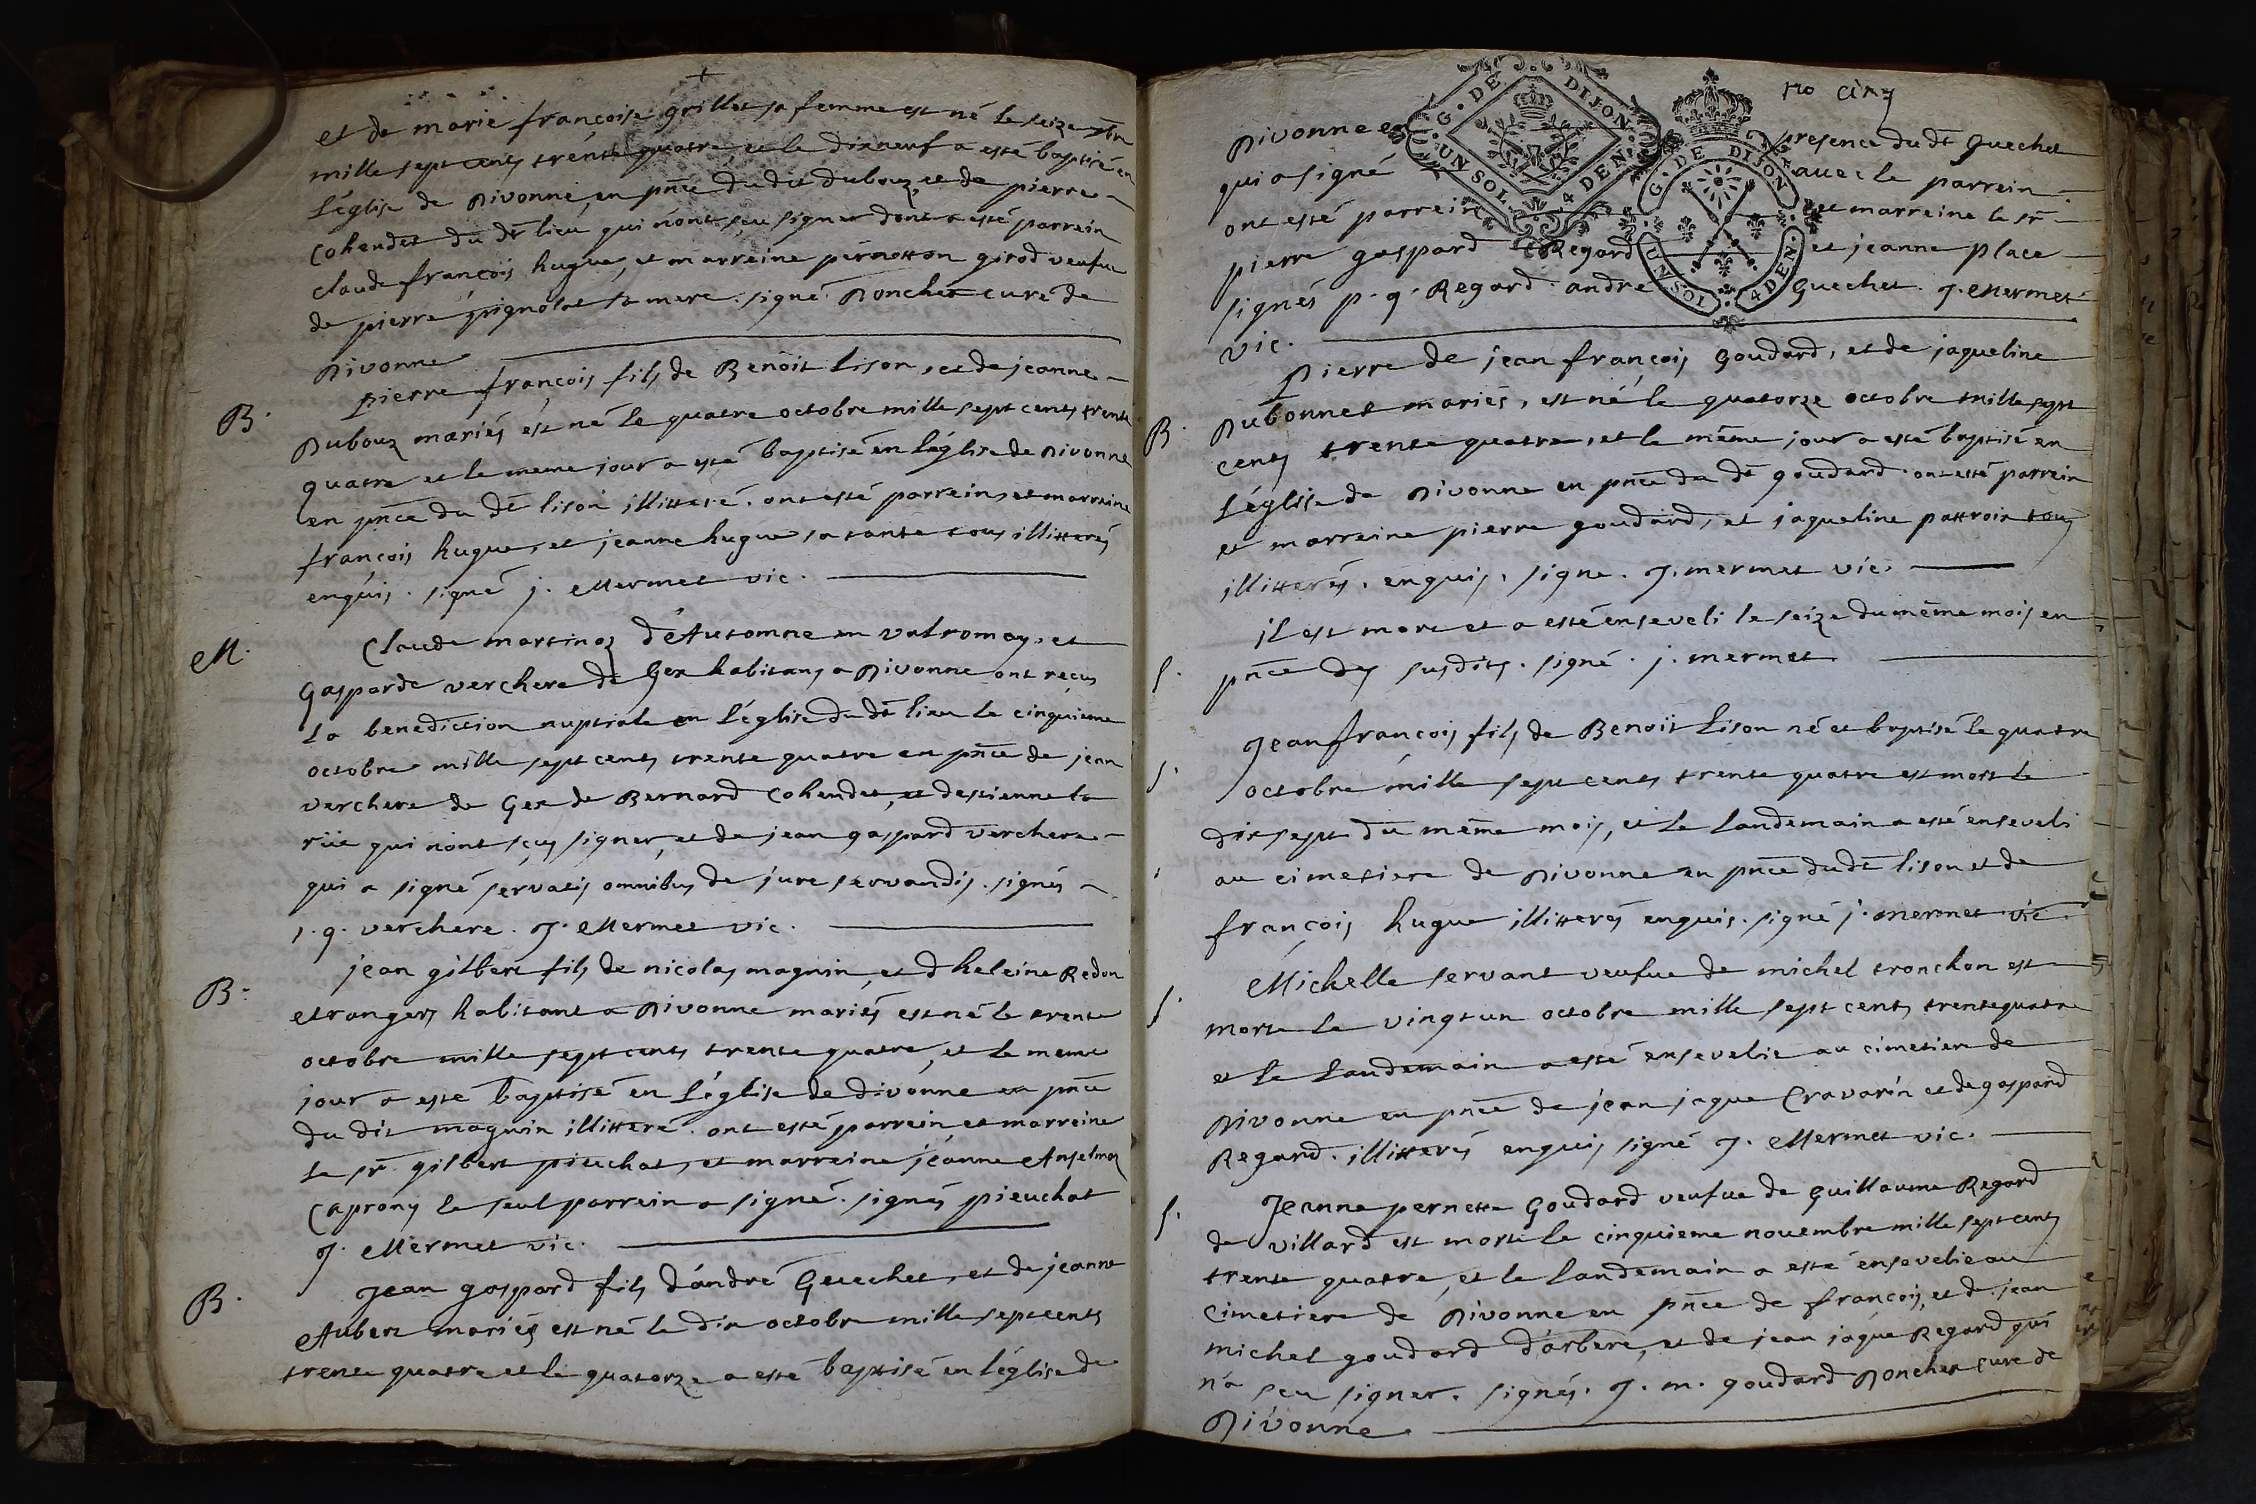 et de marie françoise grillet sa femme est né le seize 7bre
mille sept cents trente quatre, et le dixneuf a esté baptisé en
L'église de Divonne, en pnce du dit dubouz, et de pierre
Cohendet du dt lieu qui n'ont sçu signer dont a esté parrein
claude françois hugue, et marreine pernetton girod veufue
de pierre grignolat sa mere. signé Donchet curé de
Divonne
B. pierre françois fils de Benoit Lison, et de jeanne
Dubouz mariés est né le quatre octobre mille sept cents trente
quatre et le meme jour a esté baptisé en L'église de Divonne
en pnce du dt lison illitteré. ont esté parrein, et marreine
françois hugue, et jeanne hugue sa tante tous illitterés
enquis. signé j. Mermet vic.
M. Claude martinoz d'Automne en valromay, et
Gasparde verchere de Gex habitans a Divonne ont reçus
La benediction nuptiale en L'église du dt lieu le cinquieme
octobre mille sept cents trente quatre en pnce de jean
verchere de Gex de Bernard Cohendet, et destienne la
rüe qui n'ont sçus signer, et de jean gaspard verchere
qui a signé servatis omnibus de jure servandis. signés
j. g. verchere. J. Mermet vic.
B. jean gilbert fils de nicolas magnin, et d heleine Redon
etrangers habitant a Divonne mariés est né le trente
octobre mille sept cents trente quatre, et le meme
jour a esté baptisé en L'église de divonne en pnce
du dit magnin illitteré. ont esté parrein, et marreine
Le sr. gilbert pieuchat, et marreine jeanne Anselmoz
Caprony le seul parrein a signé. signés pieuchat
J. Mermet vic.
B. Jean gaspard fils d'andré Guechet, et de jeanne
Aubert mariés est né le dix octobre mille sept cents
trente quatre et le quatorze a esté baptisé en L'église de
no cinq
Divonne en presence du dt Guechet
qui a signé avec le parrein
ont esté parrein et marreine le sr
pierre gaspard Regard et jeanne place
signés p. g. Regard. andré Guechet. J. Mermet
vic.
G. DE DIJON. UN SOL. 4 DEN.
G. DE DIJON UN SOL 4 DEN.
B. Pierre de jean françois Goudard, et de jaqueline
Dubonnet mariés, est né le quatorze octobre mille sept
cents trente quatre, et le même jour a esté baptisé en
L'église de Divonne en pnce du dt goudard ont esté parrein
et marreine pierre goudard, et jaqueline pattroix tous
illitterés. enquis. signe. J. mermet vic.
il est mort et a esté enseveli le seize du même mois en
S. pnce des susdits. signé. j. mermet
Jean françois fils de Benoit Lison né et baptisé le quatre
S. octobre mille sept cents trente quatre est mort le
dixsept du même mois, et le landemain a esté enseveli
au cimetiere de Divonne en pnce du dt lison et de
françois hugue illitterés enquis. signé j. mermet vic.
Michelle servant veufue de michel tronchon est
S. morte le vingt un octobre mille sept cents trente quatre
et le landemain a esté ensevelie au cimetiere de
Divonne en pnce de jean jaque Cravarin et de gaspard
Regard. illitterés enquis signé J. Mermet vic.
S. Jeanne pernette Goudard veufue de Guillaume Regard
de villard est morte le cinquieme nouembre mille sept cents
trente quatre, et le landemain a esté ensevelie au
Cimetiere de Divonne en pnce de françois, et de jean
michel goudard d'arbere, et de jean jaque Regard qui
n'a sçu signer. signés. J. m. goudard Donchet curé de
Divonne